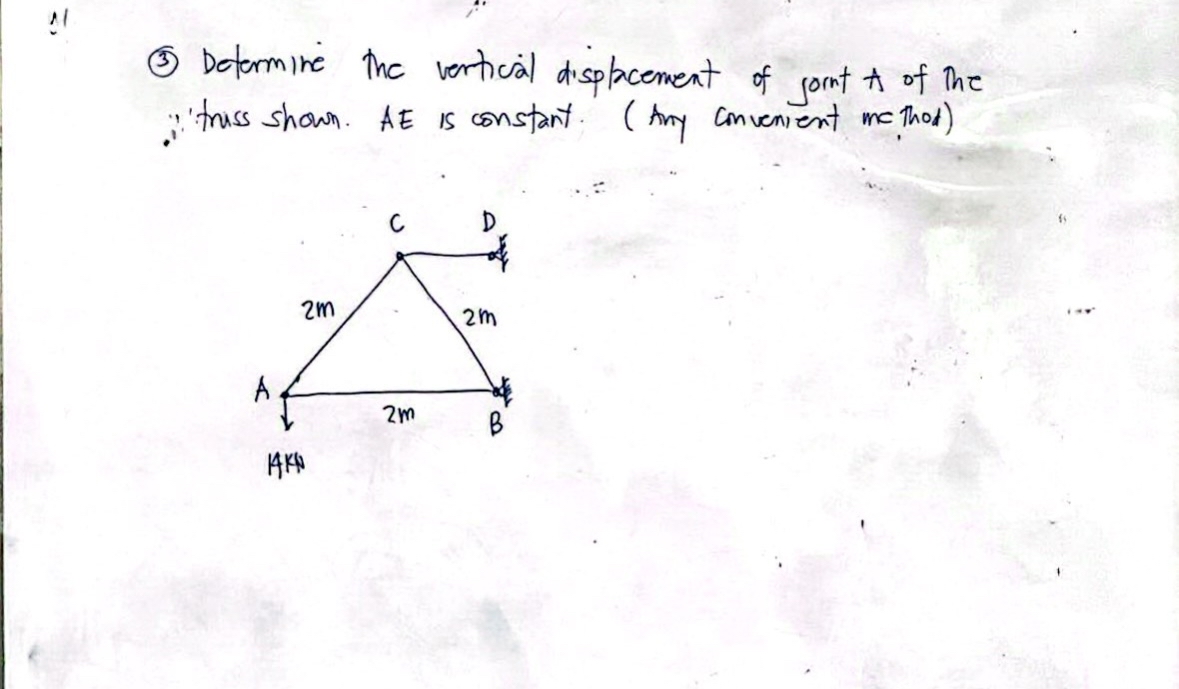 ③ Determine the vertical displacement of joint A of the
truss shown. AE is constant. (Any convenient method)
C D
2m 2m
A
2m
B
14KN